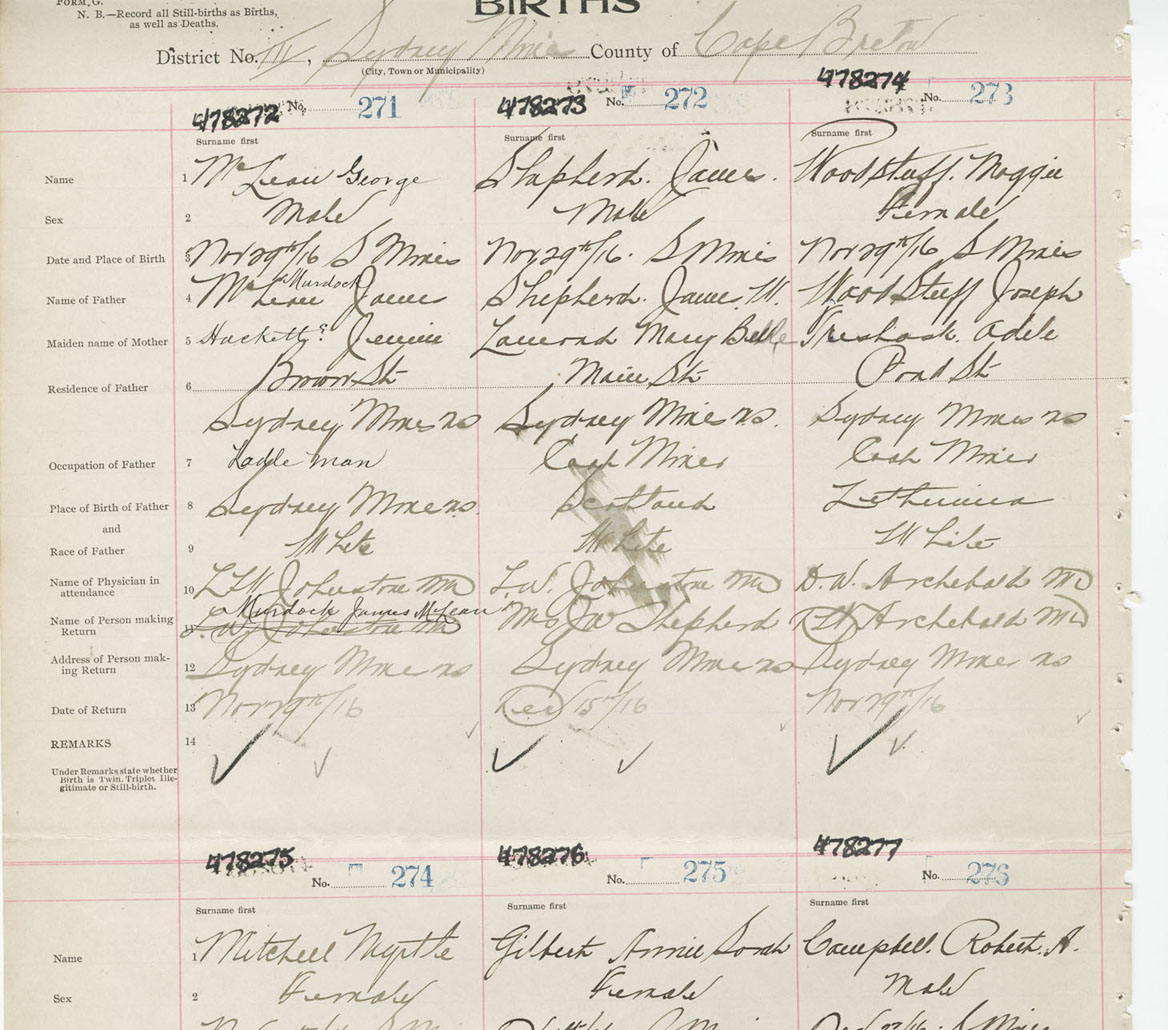 FORM, G.
N. B.—Record all Still-births as Births,
as well as Deaths.
BIRTHS
District No. III, Sydney Mines County of Cape Breton
(City, Town or Municipality)
478272 No. 271 478273 No. 272 478274 No. 273
Surname first Surname first Surname first
Name 1 McLean George Shepherd. James. Woodstuff. Maggie
Sex 2 Male Male Female
Date and Place of Birth 3 Nov 29th/16 S Mines Nov 29th/16. S Mines Nov 29th/16 S Mines
Murdock
Name of Father 4 McLean James Shepherd. James W. Woodstuff Joseph
Maiden name of Mother 5 Hackett? Jennie Lamond Mary Belle Adele
Residence of Father 6 Brown St Main St. Pond St
Sydney Mines ns Sydney Mines ns. Sydney Mines ns
Occupation of Father 7 Ladle man Coal Miner Coal Miner
Place of Birth of Father 8 Sydney Mines ns. Scotland
and
Race of Father 9 White White White
Name of Physician in
attendance 10 Johnstone MD L.W. Johnstone MD D.W. Archibald MD
Murdock James McLean
Name of Person making
Return 11 L.W. Johnstone MD Mrs JW Shepherd Archibald MD
Address of Person mak-
ing Return 12 Sydney Mines ns Sydney Mines ns Sydney Mines ns
Date of Return 13 Nov 29th/16 Dec 15th/16 Nov 29th/16
REMARKS 14
Under Remarks state whether
Birth is Twin, Triplet Ille-
gitimate or Still-birth.
478275 No. 274 478276 No. 275 478277 No. 276
Surname first Surname first Surname first
Name 1 Mitchell Myrtle Gilbert Annie Sorah Campbell. Robert. A.
Sex 2 Female Female Male